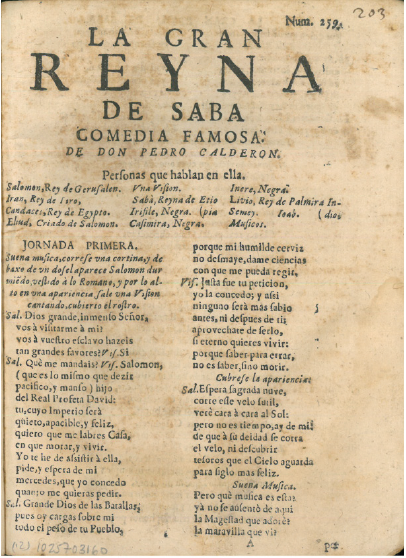 Num. 259.
203
LA GRAN
REYNA
DE SABA
COMEDIA FAMOSA.
DE DON PEDRO CALDERON.
Personas que hablan en ella.
Salomon, Rey de Gerusalen.
Iran, Rey de Tyro,
Candaces, Rey de Egypto.
Eliud, Criado de Salomon.
Vna Vision.
Sabà, Reyna de Etio
Irifile, Negra. (pia
Casimira, Negra.
Inere, Negra.
Livio, Rey de Palmira In-
Semey. Ioab. (dio,
Musicos.
JORNADA PRIMERA.
Suena musica, correse vna cortina, y de
baxo de vn dosel aparece Salomon dur
miẽdo, vestido à lo Romano, y por lo al
to en vna apariencia sale vna Vision
cantando, cubierto el rostro.
Sal. Dios grande, inmenso Señor,
vos à visitarme à mi?
vos à vuestro esclavo hazeis
tan grandes favores? Vis. Si
Sal. Què me mandais? Vis. Salomon,
(que es lo mismo que dezir
pacifico, y manso) hijo
del Real Profeta David:
tu, cuyo Imperio serà
quieto, apacible, y feliz,
quiero que me labres Casa,
en que morar, y vivir.
Yo te he de assistir à ella,
pide, y espera de mi
mercedes, que yo concedo
quanto me quieras pedir.
Sal. Grande Dios de las Batallas,
pues oy cargas sobre mi
todo el peso de tu Pueblo,
porque mi humilde cerviz
no desmaye, dame ciencias
con que me pueda regir,
Vis. Justa fue tu peticion,
yo la concedo; y assi
ninguno serà mas sabio
antes, ni despues de ti;
aprovechate de serlo,
si eterno quieres vivir:
porque saber para errar,
no es saber, sino morir.
Cubrese la apariencia:
Sal. Espera sagrada nuve,
corre esse velo sutil,
verè cara à cara al Sol:
pero no es tiempo, ay de mi!
de que à su deidad se corra
el velo, ni descubrir
tesoros que el Cielo aguarda
para siglo mas feliz.
Suena Musica.
Pero què musica es esta?
yà no se ausentò de aqui
la Magestad que adorè?
la maravilla que vi?
A
(12) 1025703160